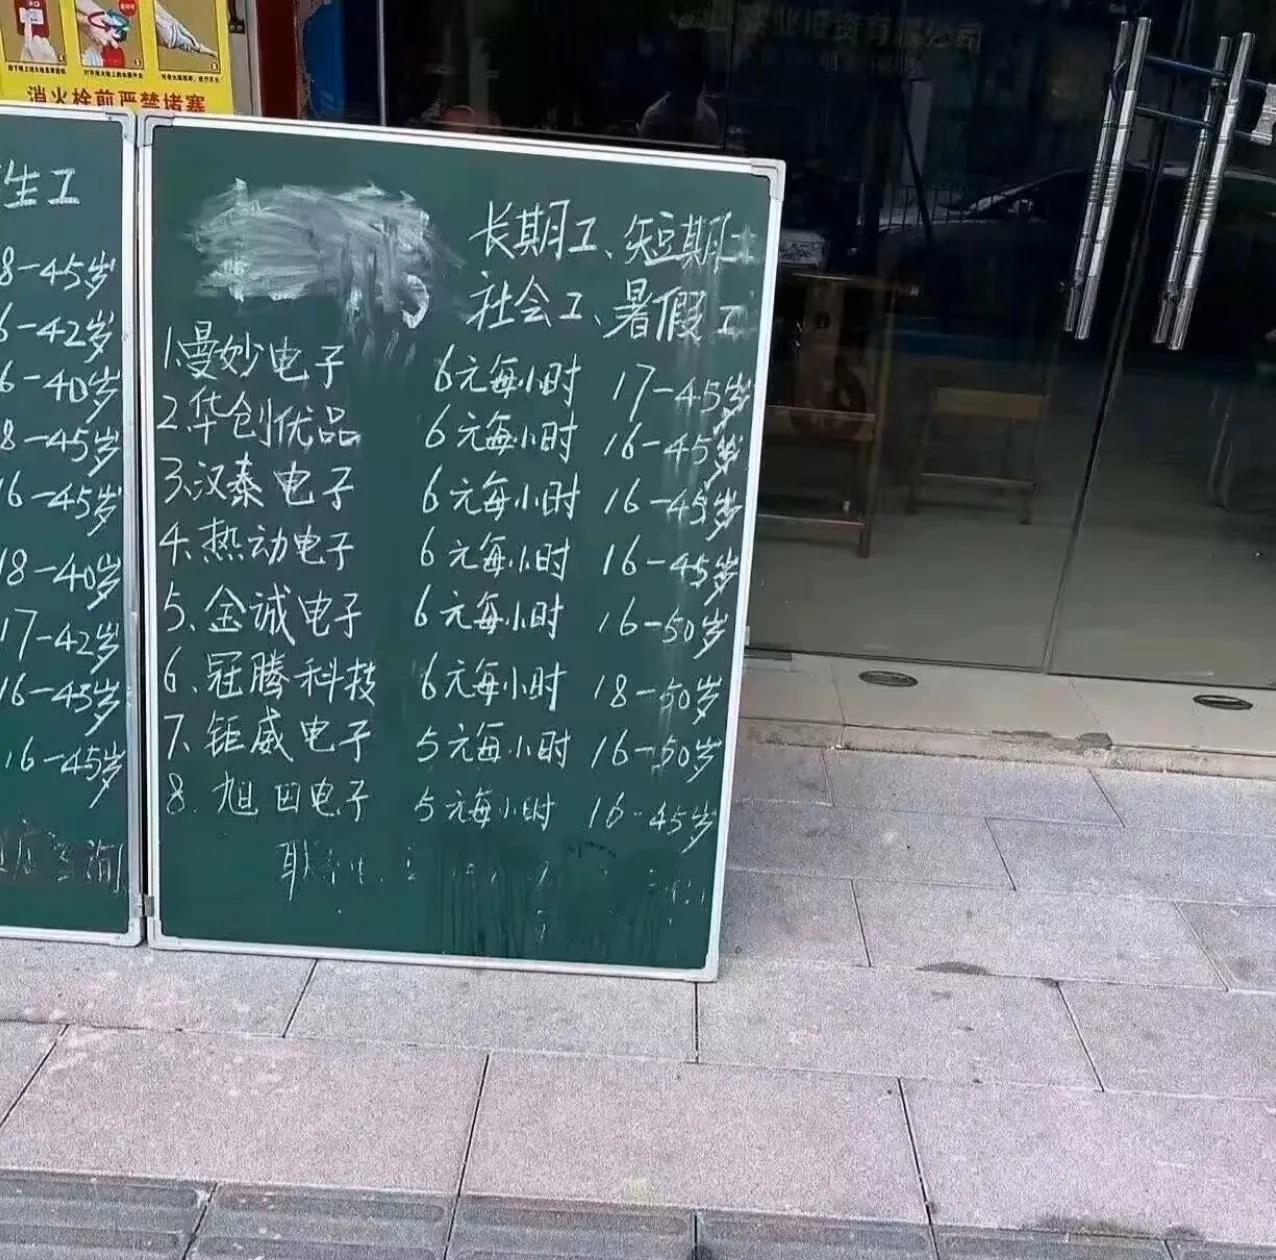 消火栓前严禁堵塞
生工
8-45岁
6-42岁
6-40岁
8-45岁
16-45岁
18-40岁
17-42岁
16-45岁
16-45岁
长期工、短期工
社会工、暑假工
1.曼妙电子 6元每小时 17-45岁
2华创优品 6元每小时 16-45岁
3、汉泰电子 6元每小时 16-45岁
4、热动电子 6元每小时 16-45岁
5、金诚电子 6元每小时 16-50岁
6、冠腾科技 6元每小时 18-50岁
7、钜威电子 5元每小时 16-50岁
8.旭田电子 5元每小时 16-45岁